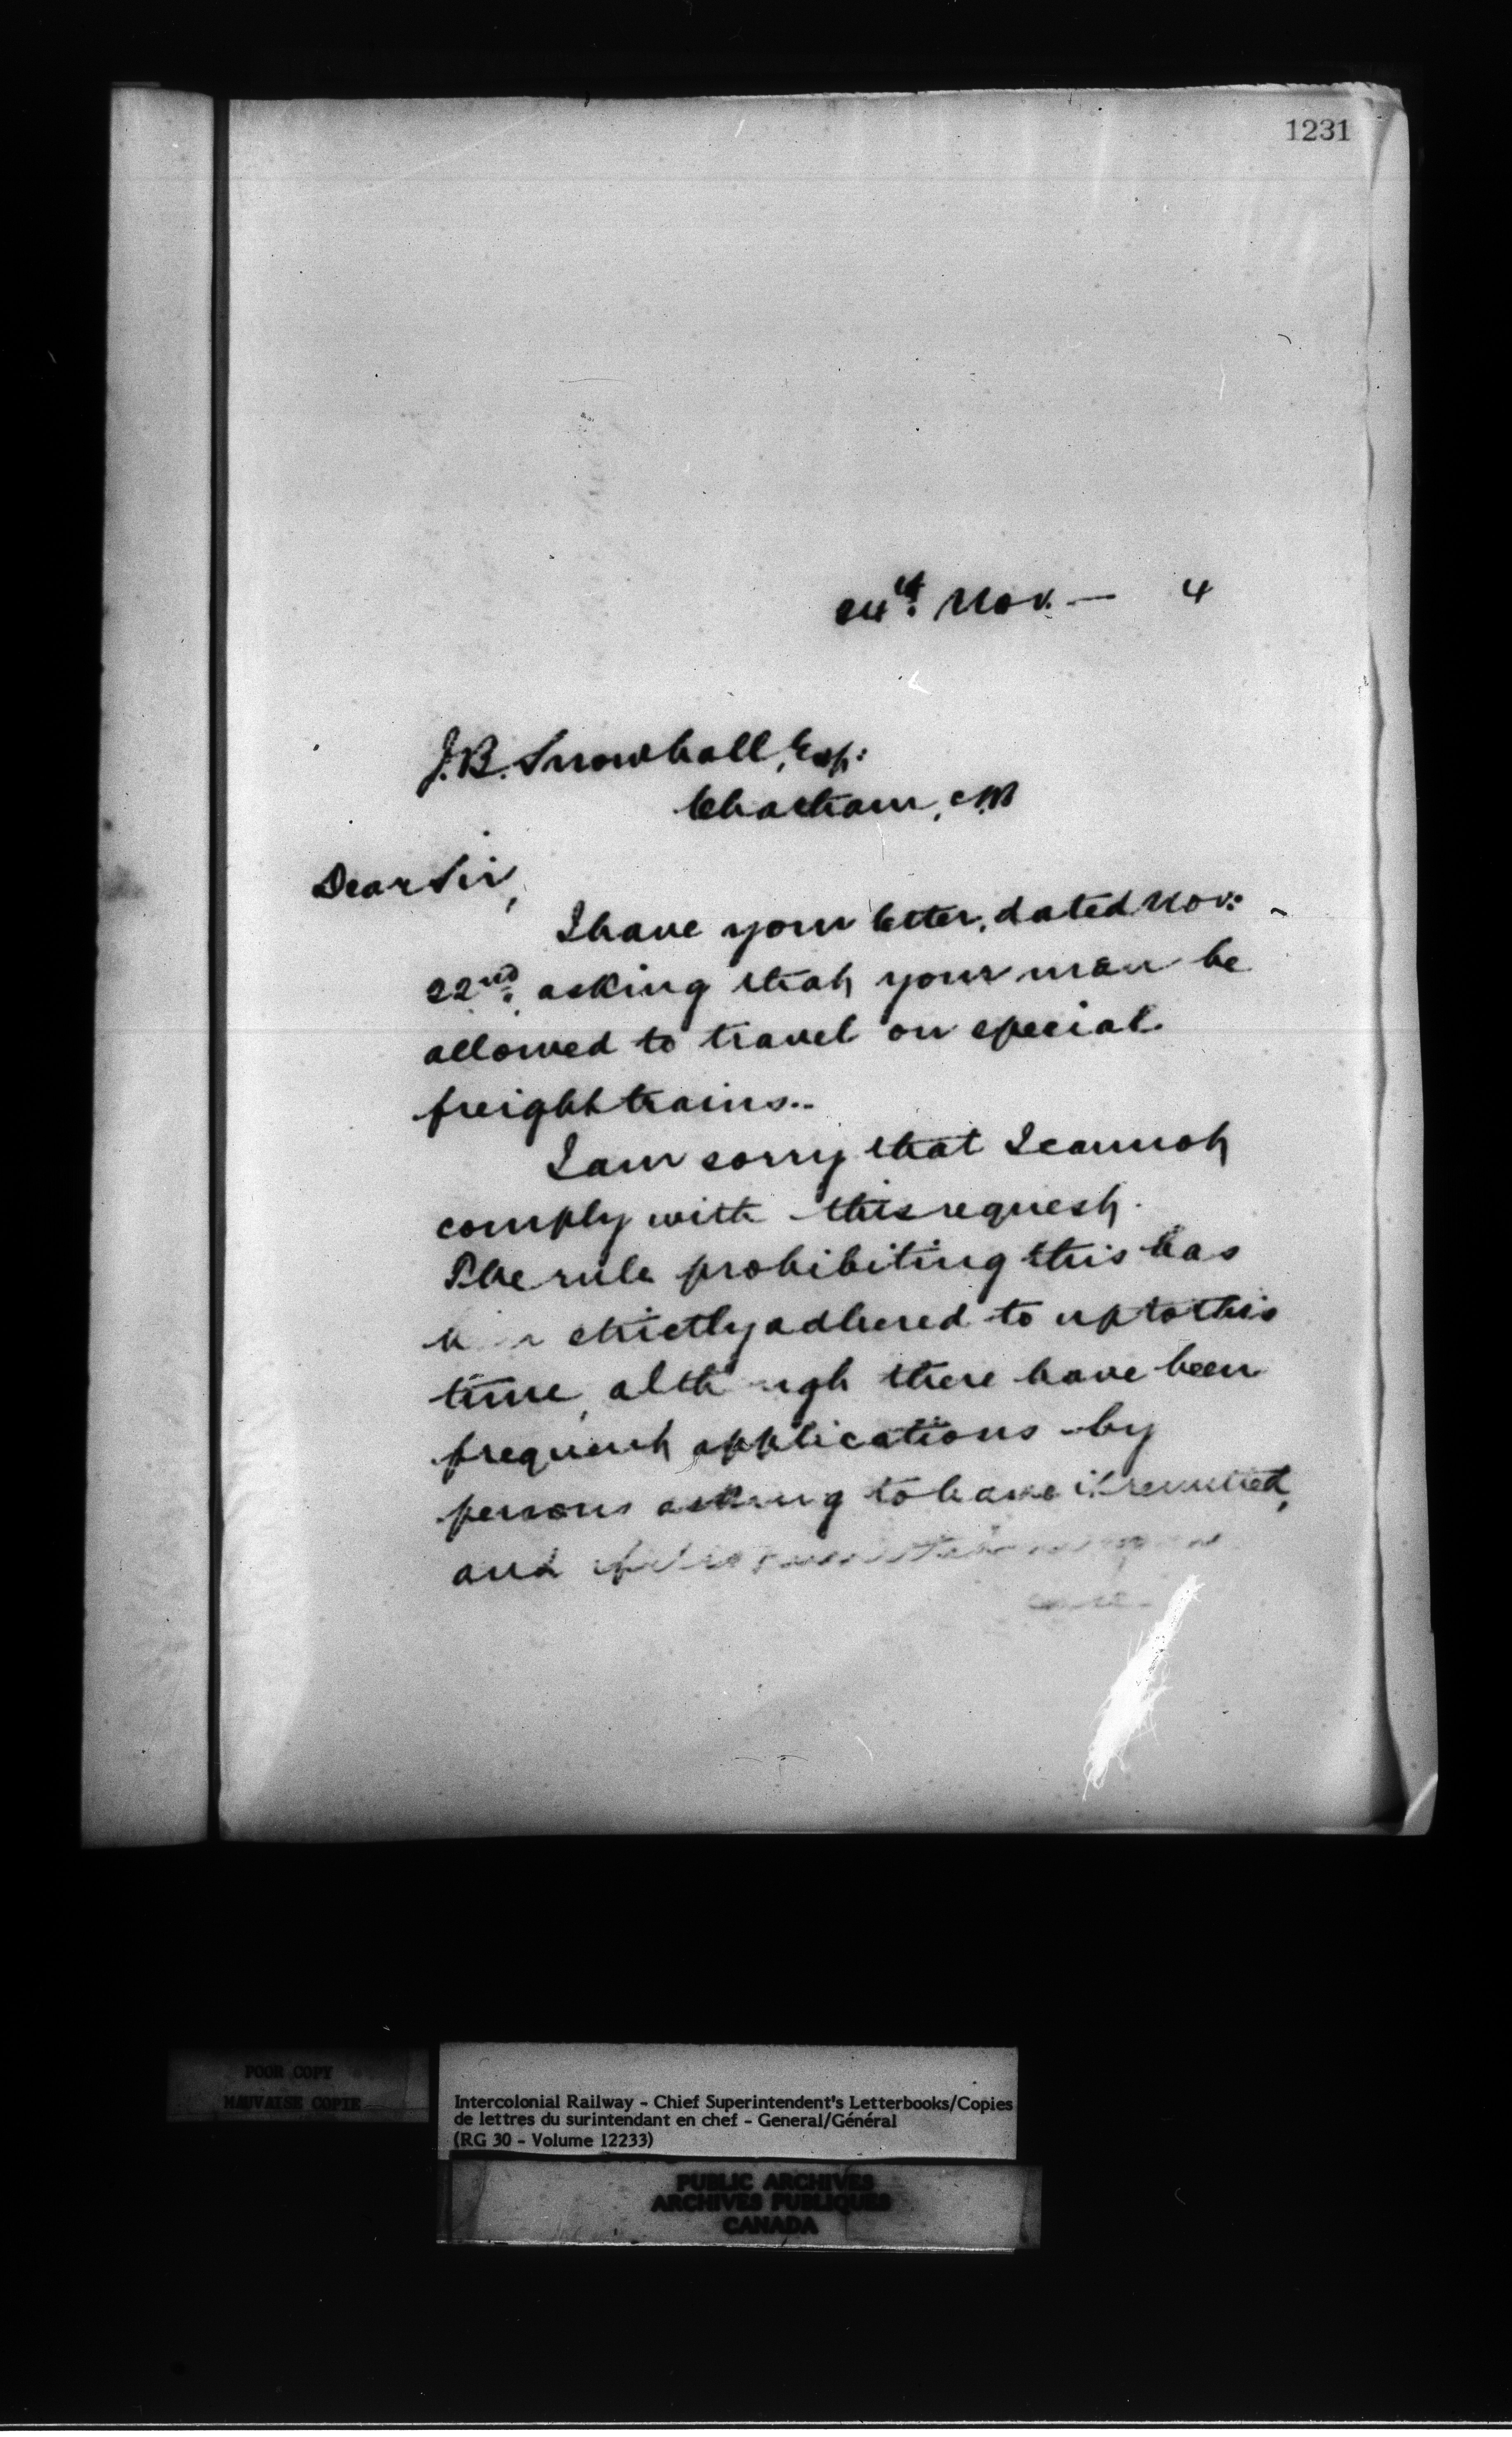 1231
24th Nov. — 4
J.B. Snowball, Esq:
Chatham, N.B
Dear Sir,
I have your letter, dated Nov:
22nd, asking that your man be
allowed to travel on special
freight trains..
I am sorry that I cannot
comply with this request.
The rule prohibiting this has
strictly adhered to up to this
time, although there have been
frequent applications by
persons asking to have it
and
POOR COPY
MAUVAISE COPIE
Intercolonial Railway - Chief Superintendent's Letterbooks/Copies
de lettres du surintendant en chef - General/Général
(RG 30 - Volume 12233)
PUBLIC ARCHIVES
ARCHIVES PUBLIQUES
CANADA